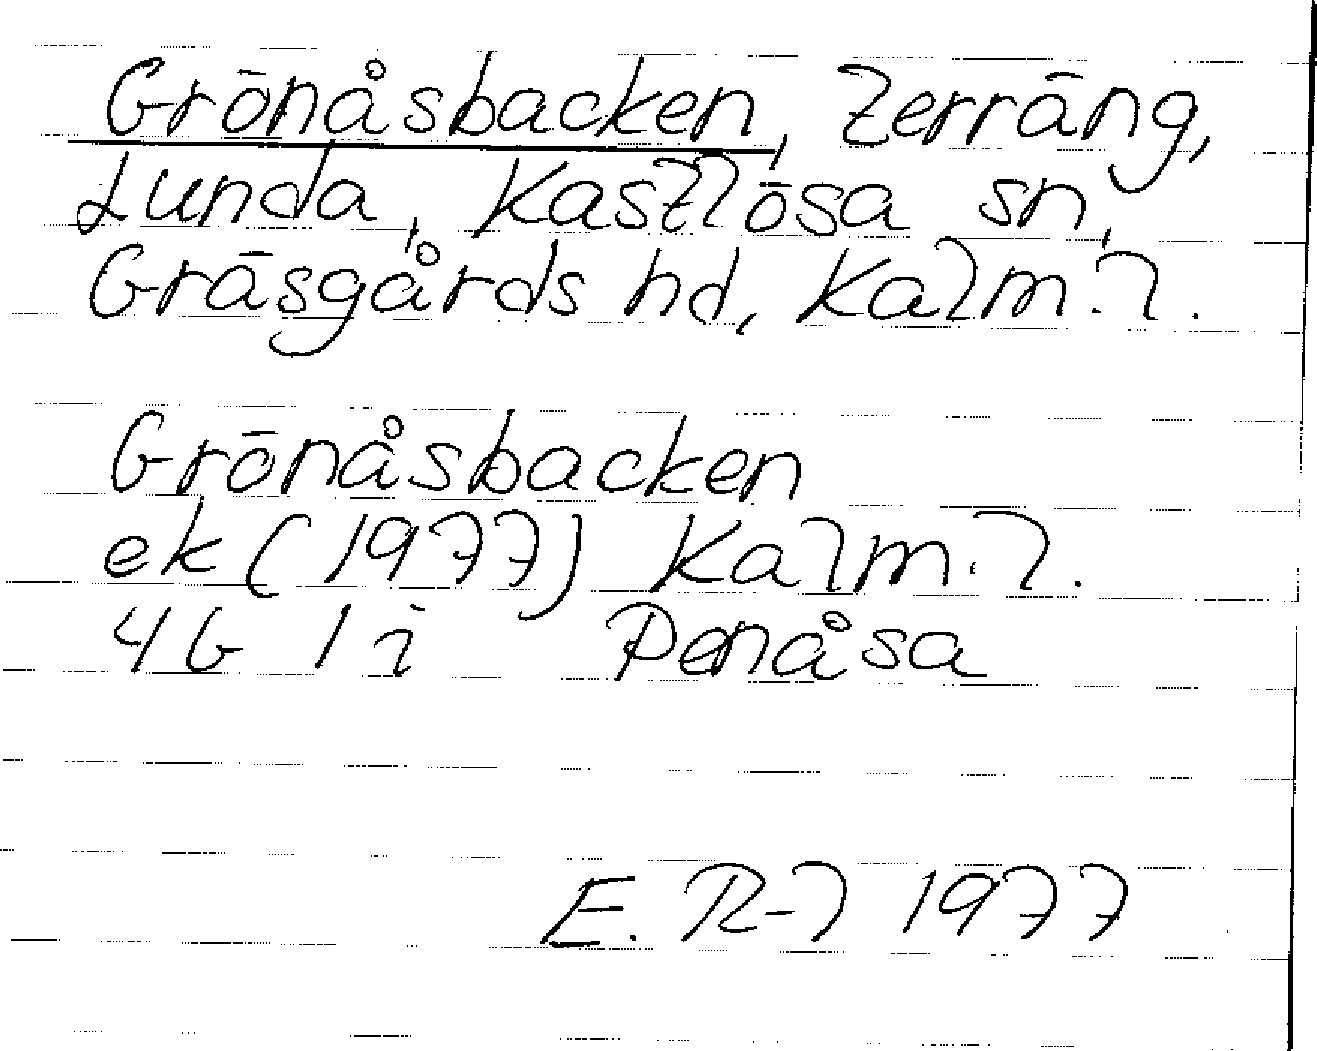 Grönåsbacken, terräng,
Lunda, Kastlösa sn,
Gräsgårds hd, Kalm. l.
Grönåsbacken
ek (1977) Kalm. l.
4G 1i Penåsa
E. R-l 1977